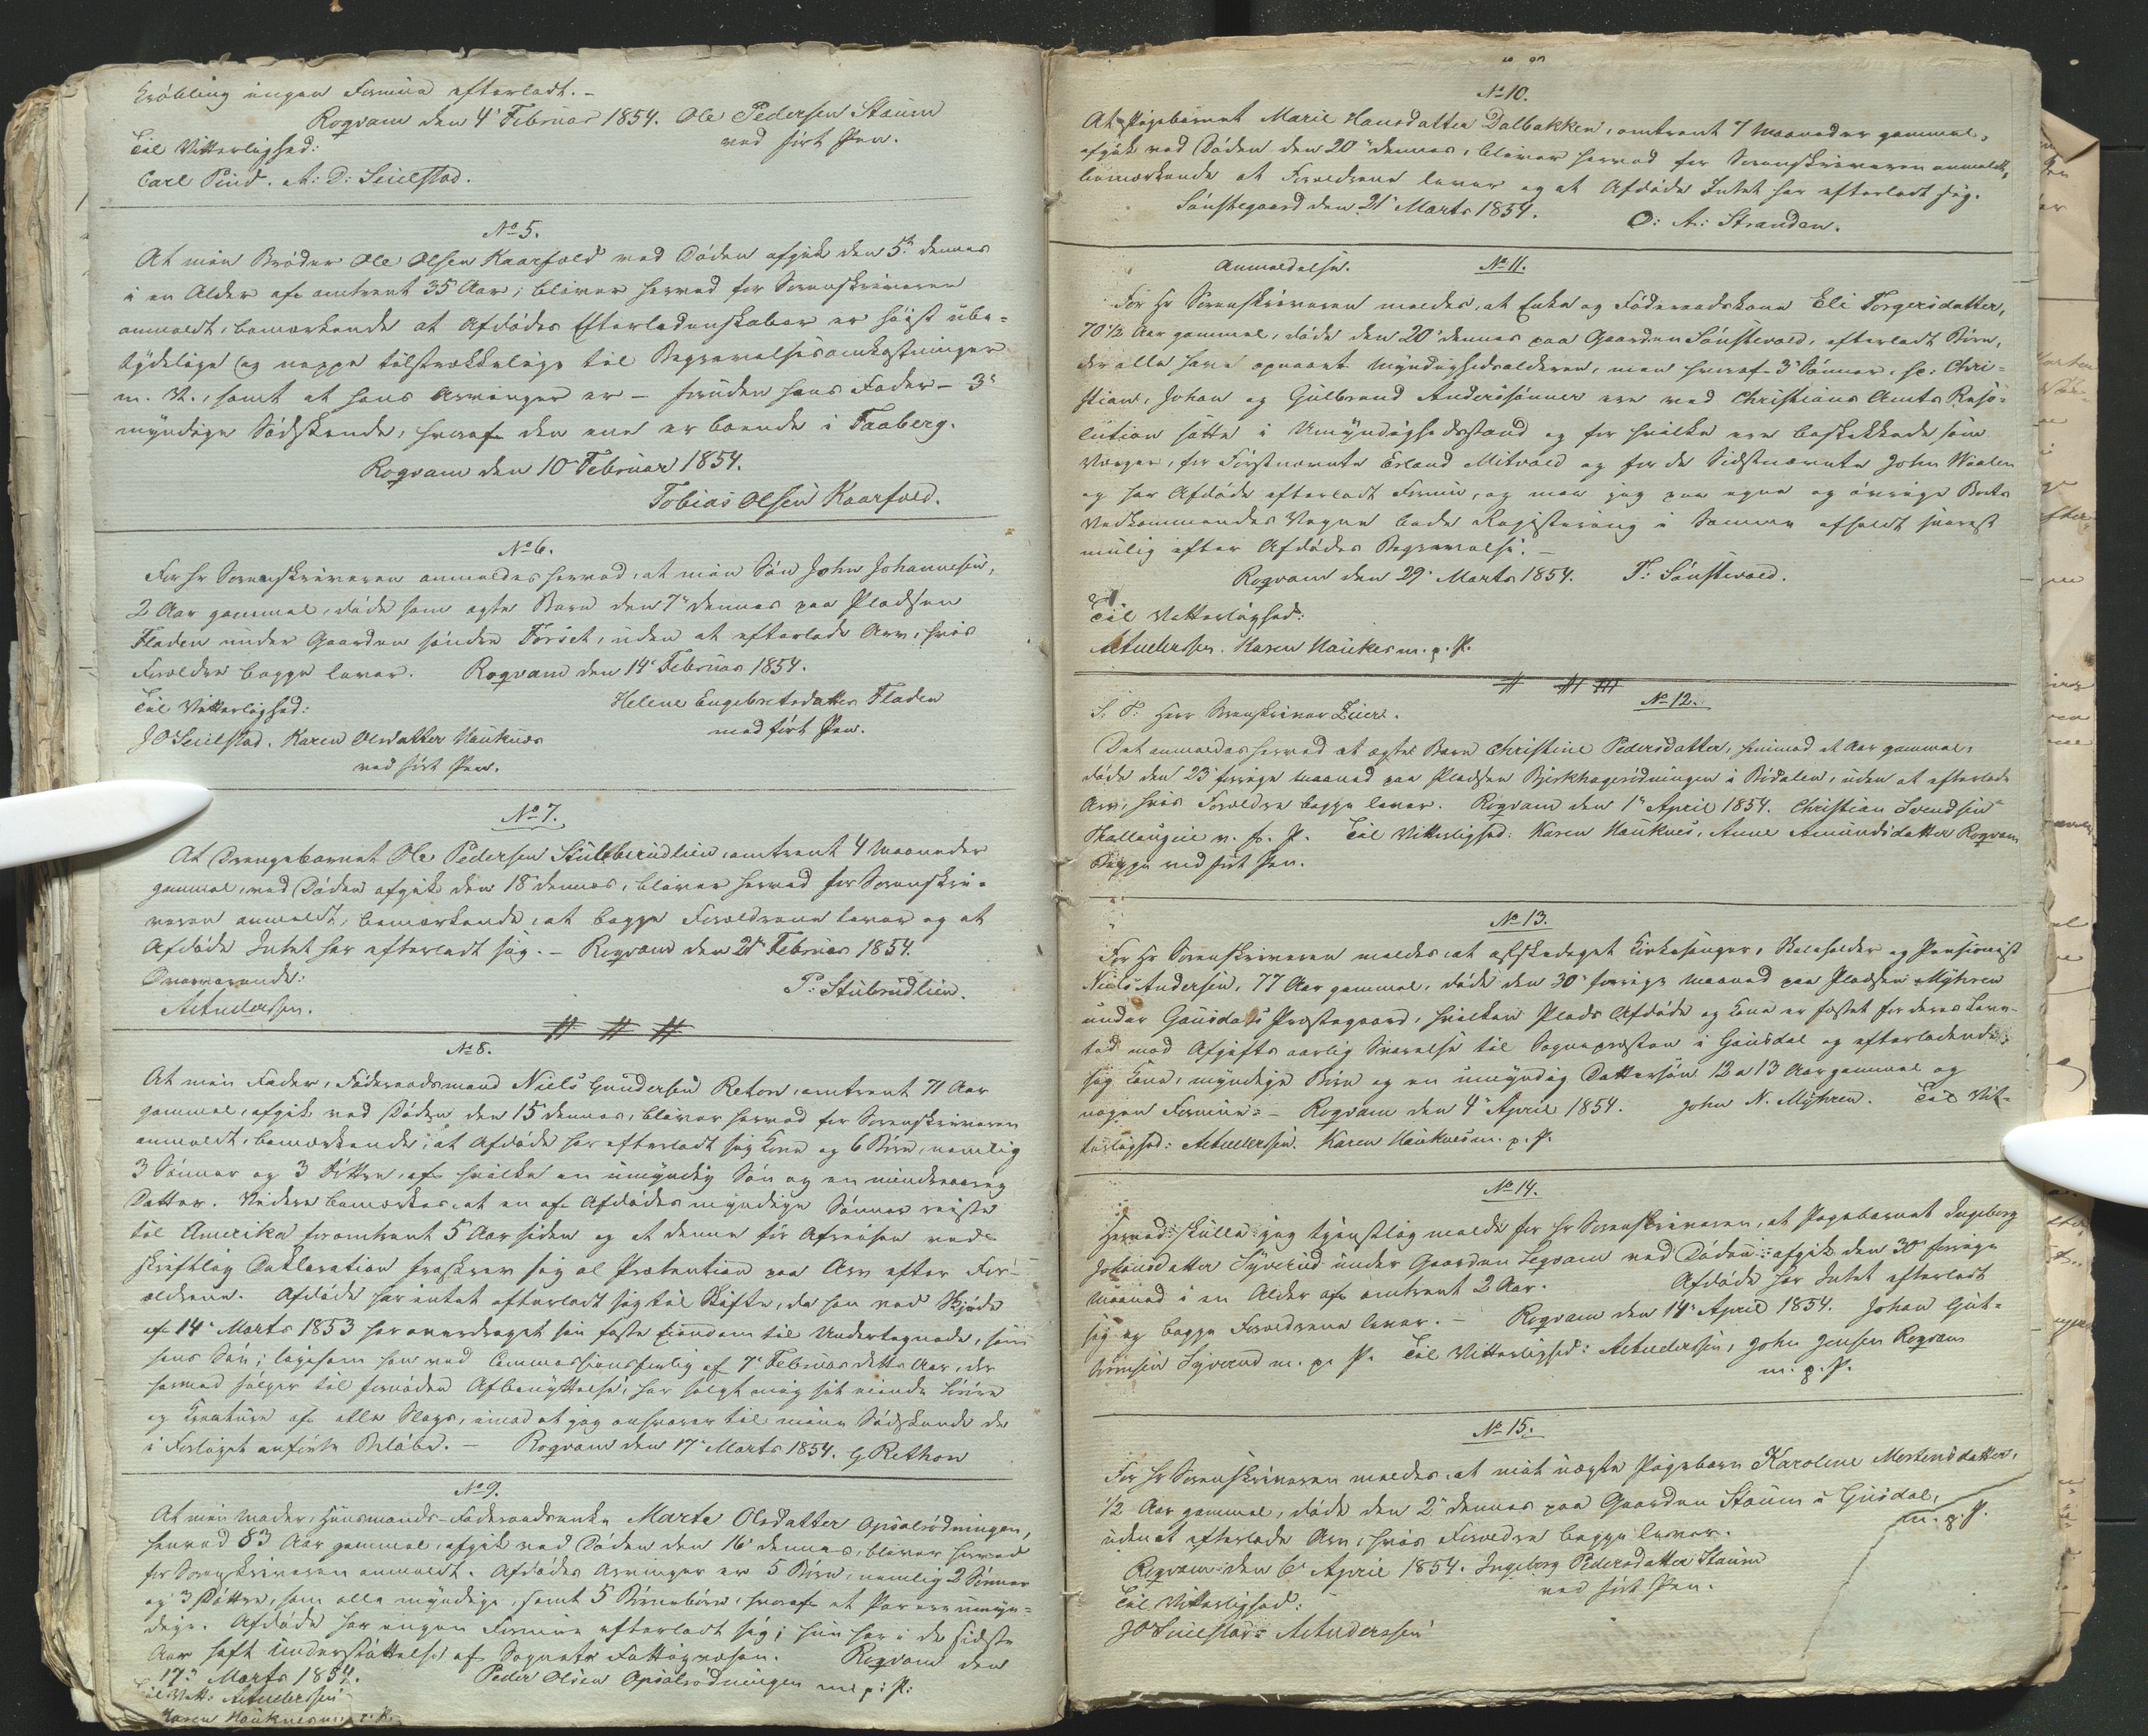 Kröbling ingen Formue efterladt. –
Roqvam den 4' Februar 1854. Ole Pedersen Staum
Til Vitterlighed: med ført Pen.
Carl Pind. A: D: Seielstad.
No 5.
At min Broder Ole Olsen Kaarfald ved Döden afgik den 5te dennes
i en Alder af omtrent 35 Aar, bliver herved for Sorenskriveren
anmeldt, bemærkende at Afdödes Efterladenskaber er höist ube-
tydelige og neppe tilstrækkelige til Begravelsesomkostninger
m. V., samt at hans Arvinger er – foruden hans Fader – 3'
myndige Södskende, hvoraf den ene er boende i Faaberg.
Roqvam den 10' Februar 1854.
Tobias Olsen Kaarfald.
No 6.
For Hr Sorenskriveren anmeldes herved, at min Sön John Johannesen,
2 Aar gammel, döde som ægte Barn den 7' dennes paa Pladsen
Fladen under Gaarden söndre Forset, uden at efterlade Arv, hvis
Forældre begge lever. Roqvam den 14' Februar 1854.
Til Vitterlighed: Helene Engebretsdatter Fladen
J O Seielstad. Karen Olsdatter Hauknæs med ført Pen.
ved ført Pen.
No 7.
At Drengebarnet Ole Pedersen Stulbrudlien, omtrent 4 Maaneder
gammel, ved Döden afgik den 18' dennes, bliver herved for Sorenskri-
veren anmeldt, bemærkende, at begge Forældrene lever og at
Afdöde Intet har efterladt sig. – Roqvam den 21' Februar 1854.
Overværende: P: Stubrudlien.
A Andersen.
No 8.
At min Fader, Föderaadsmand Niels Gundersen Reton, omtrent 71 Aar
gammel, afgik ved Döden den 15' dennes, bliver herved for Sorenskriveren
anmeldt, bemærkende, at Afdöde har efterladt sig Kone og 6 Börn, nemlig
3 Sönner og 3 Döttre, af hvilke en umyndig Sön og en mindreaarig
Datter. Videre bemærkes, at en af Afdödes myndige Sönner reiste
til Amerika for omtrent 5 Aar siden og at denne för Afreisen ved
skriftlig Deklaration fraskrev sig al Prætention paa Arv efter For-
ældrene. Afdöde har intet efterladt sig til Skifte, da han ved Skjöde
af 14' Marts 1853 har overdraget sin faste Eiendom til Undertegnede, som
hans Sön; ligesom han ved Commissionsforlig af 7' Februar dette Aar, der
hermed fölger til fornöden Afbenyttelse, har solgt mig sit eiende Löşöre
og Kreature af alle Slags, imod at jeg ansvarer til mine Södskende de
i Forliget anförte Belöbe. – Roqvam den 17' Marts 1854. G Rethon
No 9.
At min Moder, Huusmands-Föderaadsenke Marte Olsdatter Opsalrödningen,
henved 83 Aar gammel, afgik ved Döden den 16' dennes, bliver herved
for Sorenskriveren anmeldt. Afdödes Arvinger er 5 Börn, nemlig 2 Sönner
og 3 Döttre, som alle myndige, samt 5 Börnebörn, hvoraf et Par ere umyn-
dige. Afdöde har ingen Formue efterladt sig; hun har i de sidste
Aar haft Understöttelse af Sognets Fattigvæsen. Roqvam den
17' Marts 1854. Peder Olsen Opsalrödningen m: p: P:
Til Vitt: A Andersen
Karen Hauknes m. p. P.
No 10.
At Pigebarnet Marie Hansdatter Dalbakken, omtrent 7 Maaneder gammel,
afgik ved Döden den 20' dennes, bliver herved for Sorenskriveren anmeldt,
bemærkende at Forældrene lever og at Afdöde Intet har efterladt sig.
Sönstegaard den 21' Marts 1854. O: A: Stranden.
Anmeldelse. No 11.
For Hr Sorenskriveren meldes, at Enke og Föderaadskone Eli Torgersdatter,
70 1/2 Aar gammel, döde den 20' dennes paa Gaarden Sönstevold, efterladt Börn,
der alle have opnaaet Myndighedsalderen, men hvoraf 3' Sönner, sc: Chri-
stian, Johan og Gulbrand Anderssönner ere ved Christians Amts Reso-
lution satte i Umyndighedsstand og for hvilke ere beskikkede som
Verger, for Förstnævnte Erland Mitvold og for de Sidstnævnte John Waalen
og har Afdöde efterladt Formue, og maa jeg paa egne og övrige Boets
Vedkommendes Vegne bede Registrering i Sammes afholdt snarest
mulig efter Afdödes Begravelse. –
Roqvam den 29' Marts 1854. T: Sönstevold.
Til Vitterlighed:
A Andersen. Karen Haukes m. p. P.
No 12.
S. T. Herr Sorenskriver Lier.
Det anmeldes herved at ægte Barn Christine Pedersdatter, henimod et Aar gammel,
döde den 23' forrige Maaned paa Pladsen Bjerkhagerödningen i Bödalen, uden at efterlade
Arv, hvis Forældre begge lever. Roqvam den 1' April 1854. Christian Svendsen
Skallaugen m. p. P. Til Vitterlighed: Karen Hauknes, Anne Amundsdatter Roqvam
Begge ved ført Pen.
No 13.
For Hr Sorenskriveren meldes, at afskediget Kirkesanger, Skoleholder og Pensionist
Niels Andersen, 77 Aar gammel, döde den 30' forrige Maaned paa Pladsen Myhren
under Gausdals Præstegaard, hvilken Plads Afdöde og Kone er fæstet for deres Leve-
tid mod Afgifts aarlig Svarelse til Sognepræsten i Gausdal og efterladende
sig Kone, myndige Börn og en umyndig Dattersön 12 a 13 Aar gammel og
nogen Formue. – Roqvam den 4' April 1854. John N. Myhren. Til Vit-
terlighed: A Andersen. Karen Hauknes m. p. P.
No 14.
Herved skulle jeg tjenstlig melde for Hr Sorenskriveren, at Pigebarnet Ingeborg
Johansdatter Syverud under Gaarden Segvam ved Döden afgik den 30' forrige
Maaned i en Alder af omtrent 2 Aar. Afdöde har Intet efterladt
sig og begge Forældrene lever. – Roqvam den 14' April 1854. Johan Gut-
tormsen Syverud m. p. P. Til Vitterlighed: A Andersen, John Jensen Roqvam
m. p. P.
No 15.
For Hr Sorenskriveren meldes, at mit uægte Pigebarn Karoline Mortensdatter,
1/2 Aar gammel, döde den 2' dennes paa Gaarden Staum i Gusdal,
uden at efterlade Arv, hvis Forældre begge lever. m. p. P.
Roqvam den 6' April 1854. Ingeborg Pedersdatter Staum
Til Vitterlighed: ved ført Pen.
J O Seielstad. A Anderssen